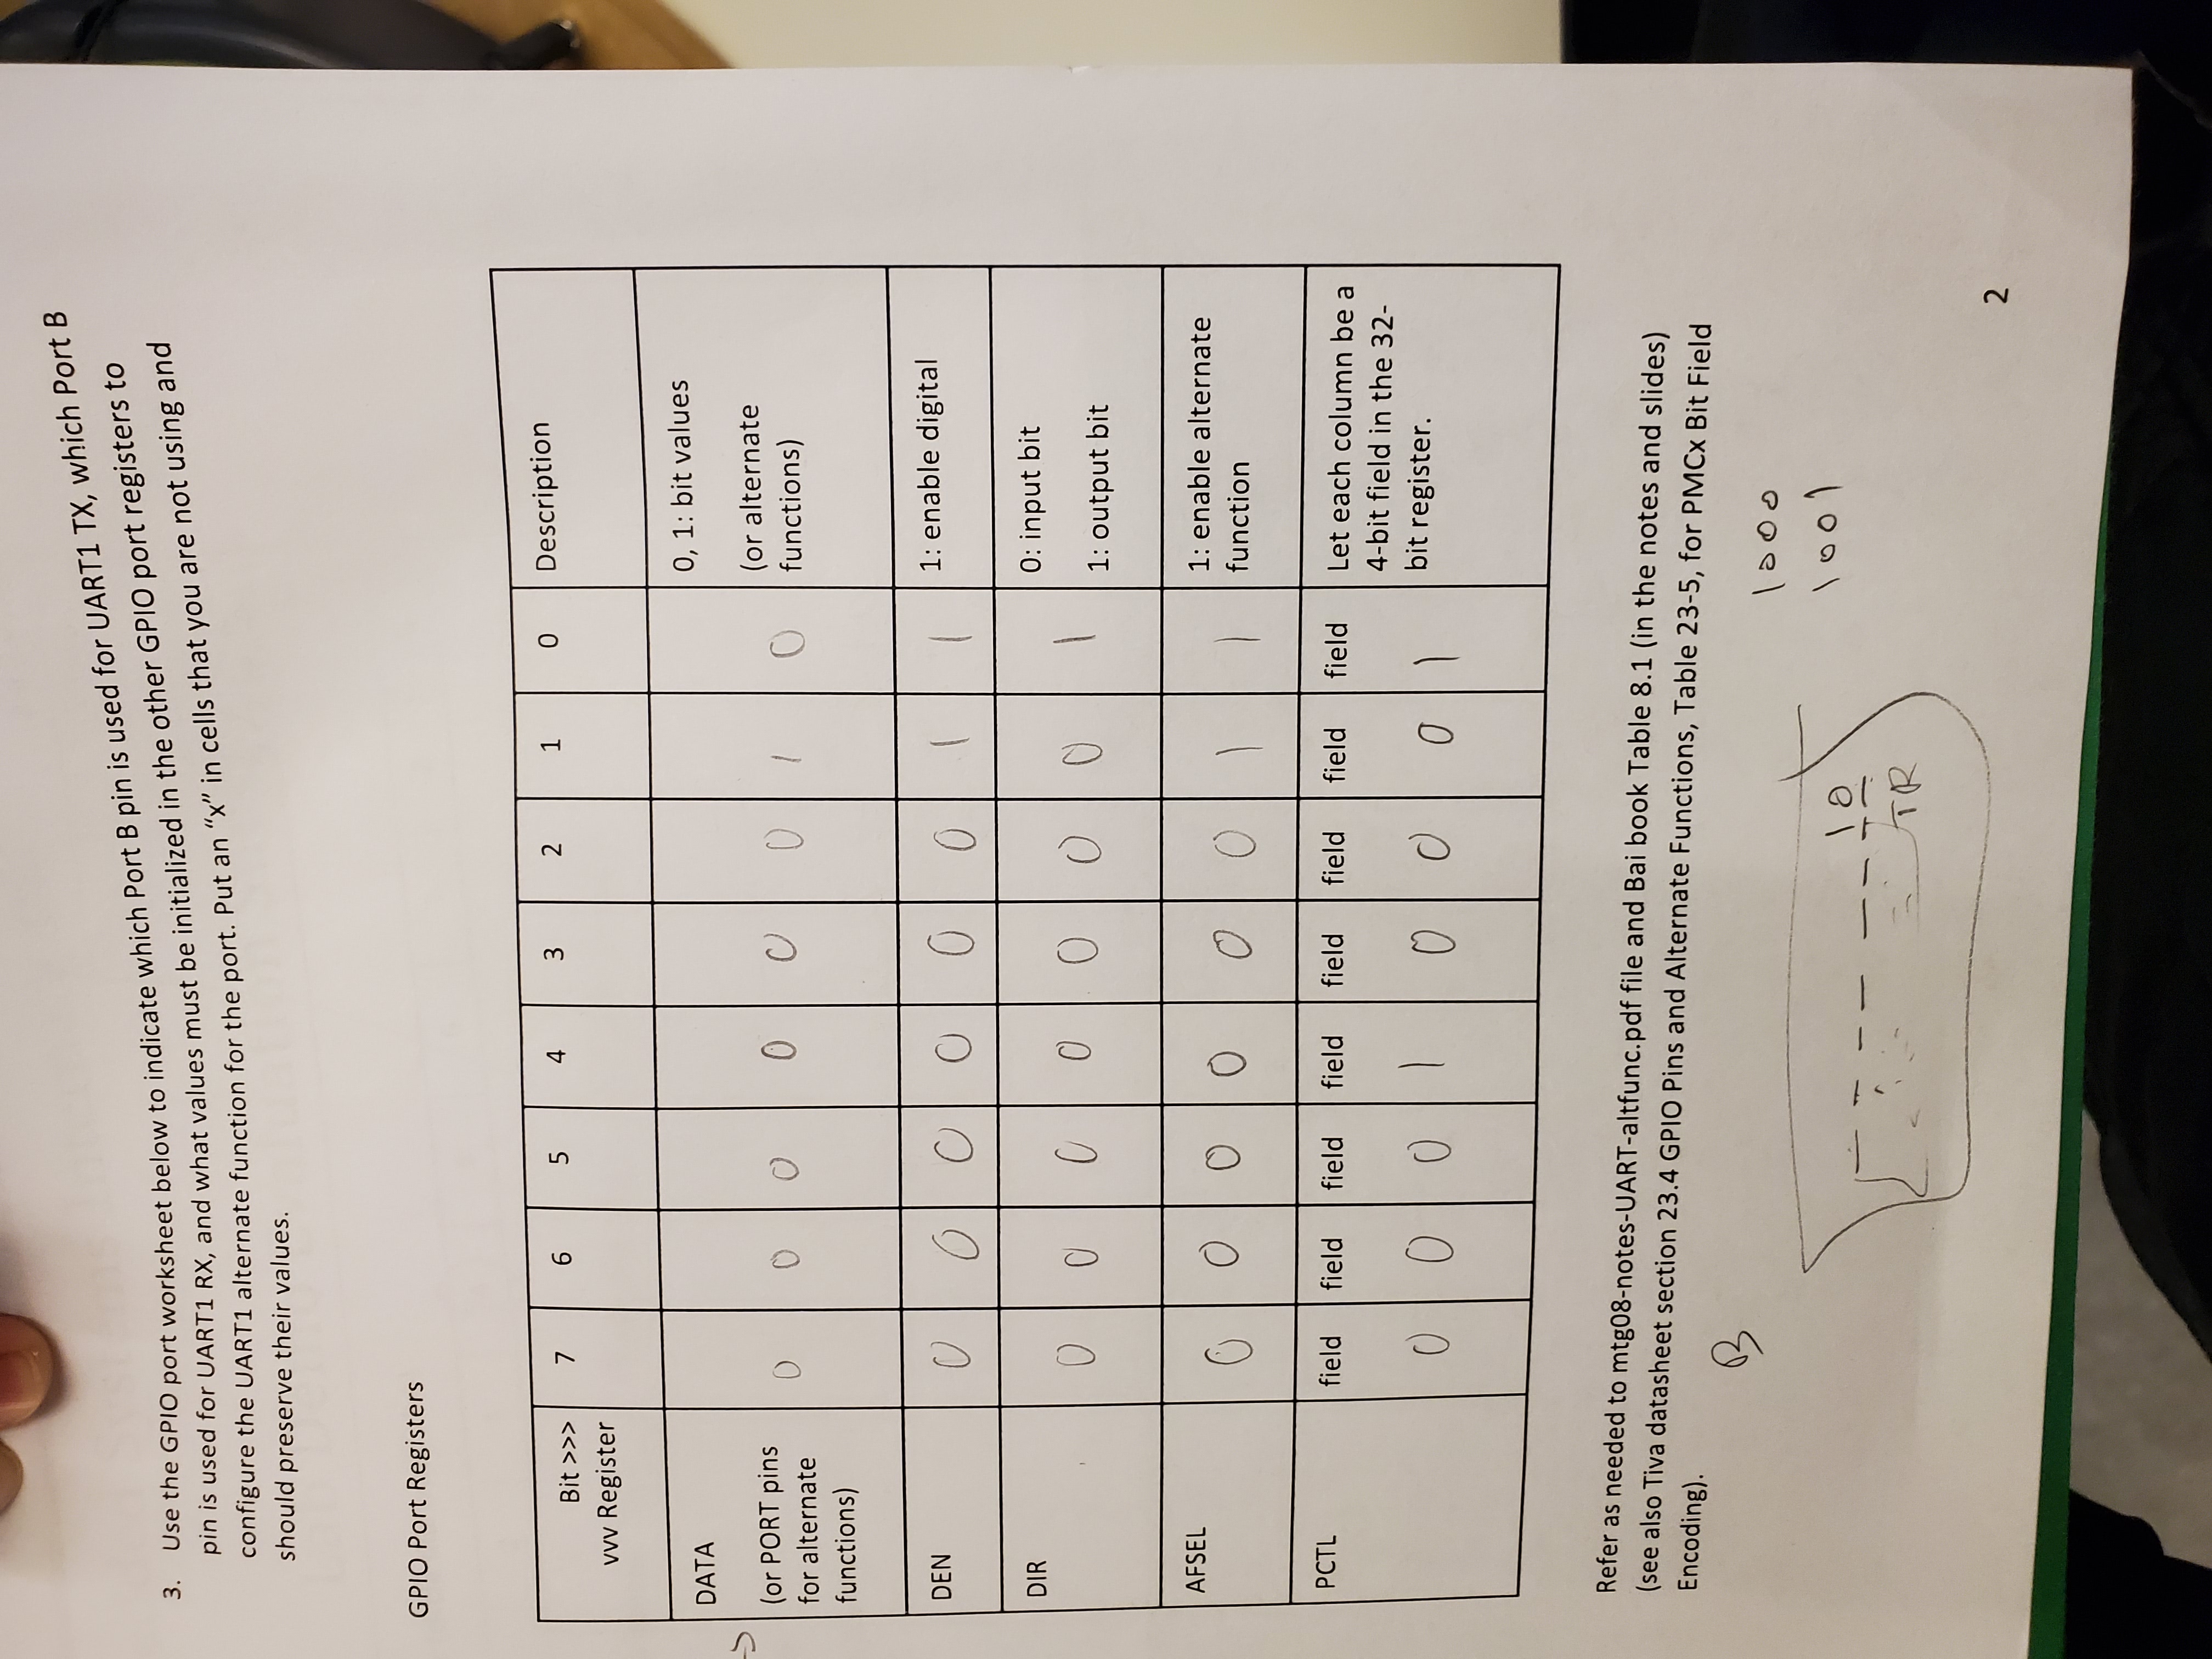 3. Use the GPIO port worksheet below to indicate which Port B pin is used for UART1 TX, which Port B
pin is used for UART1 RX, and what values must be initialized in the other GPIO port registers to
configure the UART1 alternate function for the port. Put an “x” in cells that you are not using and
should preserve their values.
GPIO Port Registers
Bit >>> 7 6 5 4 3 2 1 0 Description
vvv Register
DATA 0, 1: bit values
(or PORT pins (or alternate
for alternate 0 0 0 0 0 0 1 0 functions)
functions)
DEN 0 0 0 0 0 0 1 1 1: enable digital
DIR 0: input bit
0 0 0 0 0 0 0 1
1: output bit
AFSEL 0 0 0 0 0 0 1 1 1: enable alternate
function
PCTL field field field field field field field field Let each column be a
4-bit field in the 32-
0 0 0 1 0 0 0 1 bit register.
Refer as needed to mtg08-notes-UART-altfunc.pdf file and Bai book Table 8.1 (in the notes and slides)
(see also Tiva datasheet section 23.4 GPIO Pins and Alternate Functions, Table 23-5, for PMCx Bit Field
Encoding).
B
1000
1001
1 0
TR
2